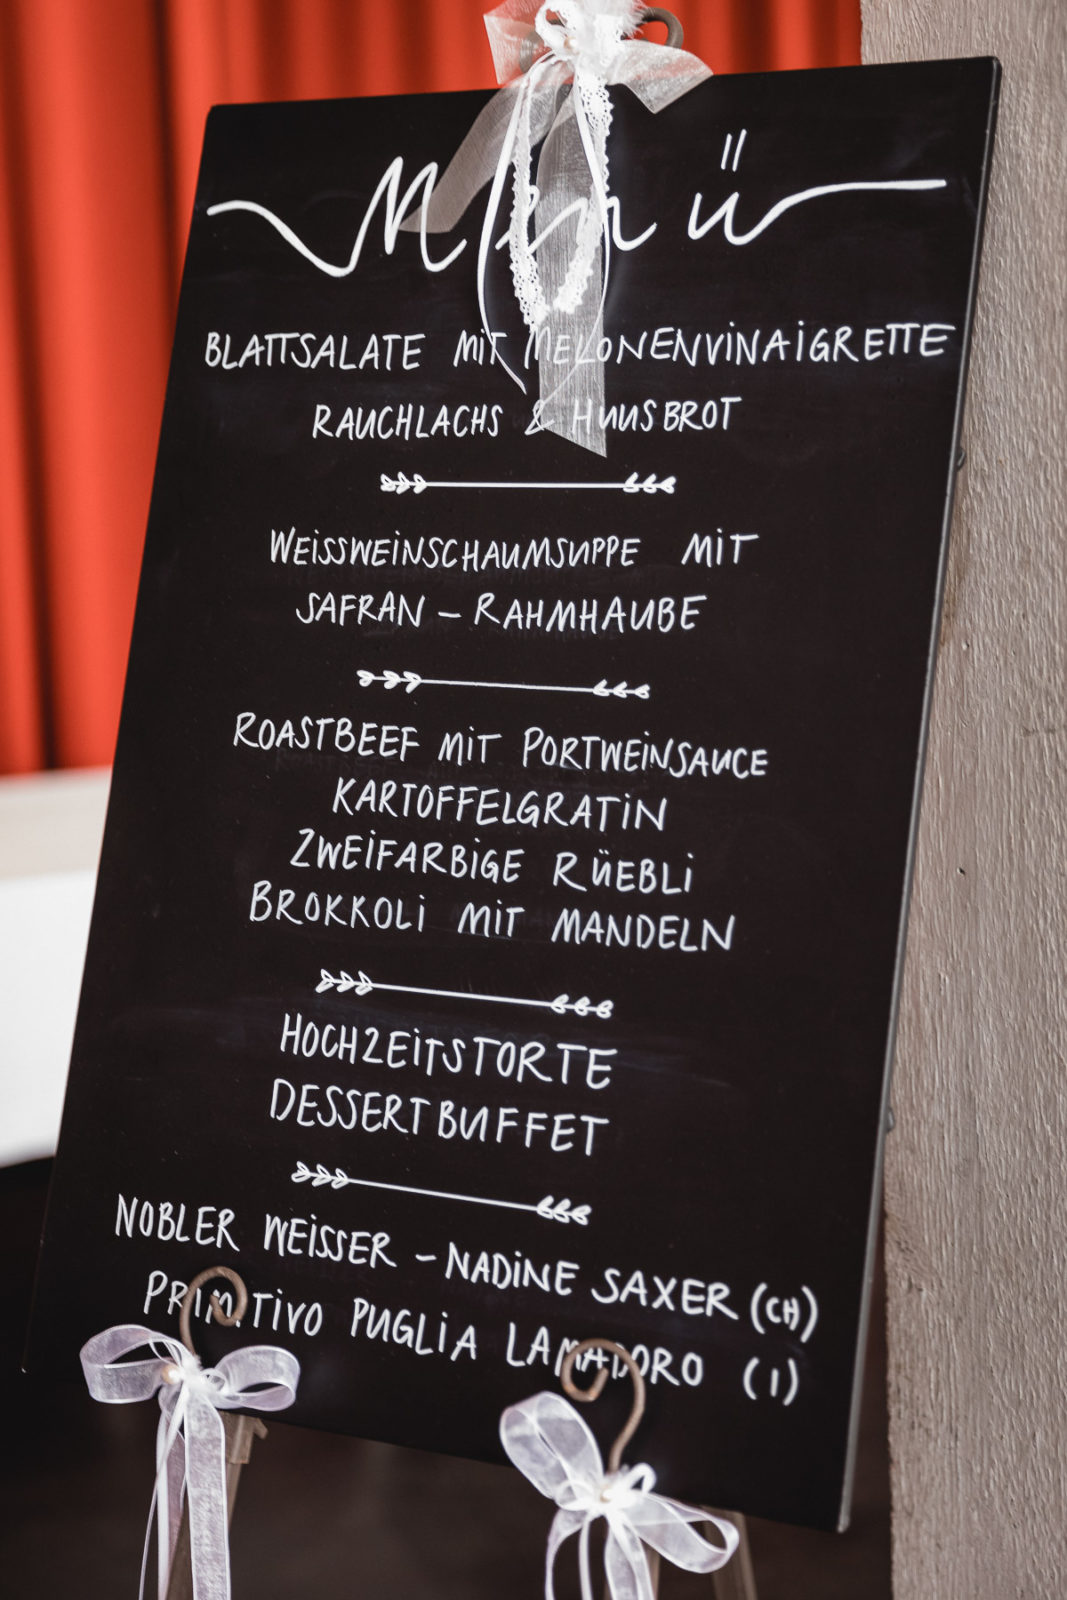 Menü
BLATTSALATE MIT MELONENVINAIGRETTE
RAUCHLACHS & HUUSBROT
WEISSWEINSCHAUMSUPPE MIT
SAFRAN – RAHMHAUBE
ROASTBEEF MIT PORTWEINSAUCE
KARTOFFELGRATIN
ZWEIFARBIGE RÜEBLI
BROKKOLI MIT MANDELN
HOCHZEITSTORTE
DESSERTBUFFET
NOBLER WEISSER – NADINE SAXER (CH)
PRIMITIVO PUGLIA LAMADORO (I)